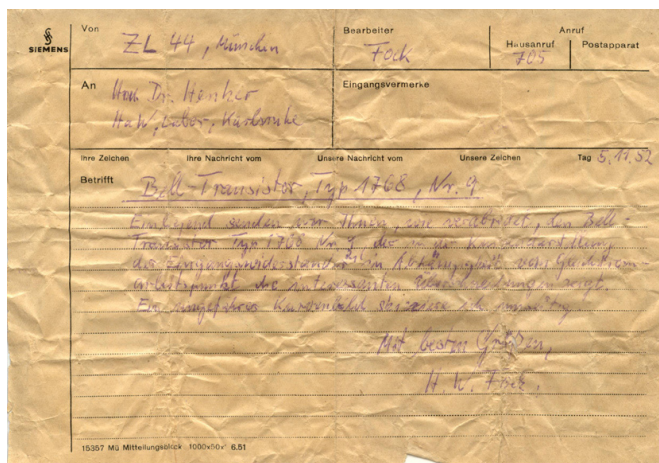 SIEMENS
Von
ZL 44, München
Bearbeiter
Fock
Anruf
Hausanruf
Postapparat
705
An
Herrn Dr. Henker
HaW, Labor, Karlsruhe
Eingangsvermerke
Ihre Zeichen
Ihre Nachricht vom
Unsere Nachricht vom
Unsere Zeichen
Tag 5.11.52
Betrifft
Bell-Transistor, Typ 1768, Nr. 9
senden wir Ihnen, wie, den Bell-
Transistor Typ 1768 Nr. 9, der in der
des Eingangswiderstandes in Abhängigkeit vom
die interessanten zeigt.
Ein ungefähres Kurvenbild
Mit besten Grüßen,
H. W. Fock.
15357 Mü Mitteilungsblock 1000x50x 6.51